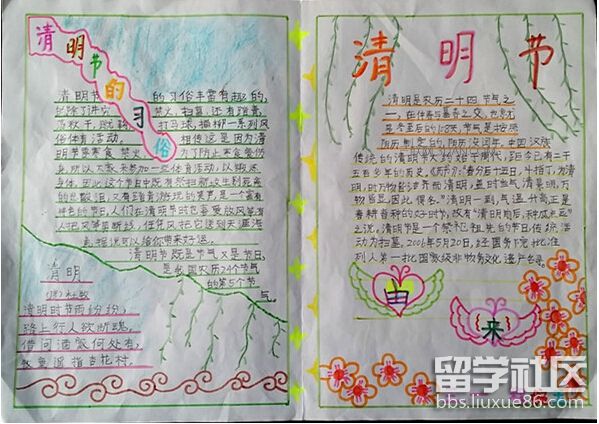 清明节的习俗
清明节的习俗丰富有趣的,
除了讲究禁火、扫墓,还有踏青、
荡秋千、蹴鞠、打马球、插柳一系列风
俗体育活动。相传这是因为清
明节要寒食禁火,为了防止寒食餐伤
身,所以大家来参加一些体育活动,以锻炼
身体。因此这个节日中既有祭扫新坟生别死离
的悲酸泪,又有踏青游玩的笑声,是一个富有
特色的节日。人们在清明节时也喜爱放风筝。有
人把风筝放
剪断线,任凭风把它送到天涯海
角,据说可以给你带来好运。
清明节既是节气又是节日,
是我国农历24个节气
的第5个节
气。
清明
(唐)杜牧
清明时节雨纷纷,
路上行人欲断魂。
借问酒家何处有,
牧童遥指杏花村。
清明节
清明是农历二十四节气之
一,在仲春与暮春之交,也就
是冬至后的108天。节气是按照
阳历制定的,
中国汉族
传统的清明节大约始于周代,距今已有二千
五百多年的历史。《历书》:“春分后十五日,斗指丁,为清
明,时万物皆洁齐而清明,盖时当气清景明,万
物皆显,因此得名。”清明一到,气温升高,正是
春耕春种的好时节,故有“清明前后,种瓜点豆”
之说。清明节是一个祭祀祖先的节日,传统活
动为扫墓。2006年5月20日,经国务院批准
列入第一批国家级非物质文化遗产名录。
由
来
留学社区
bbs.liuxue86.com